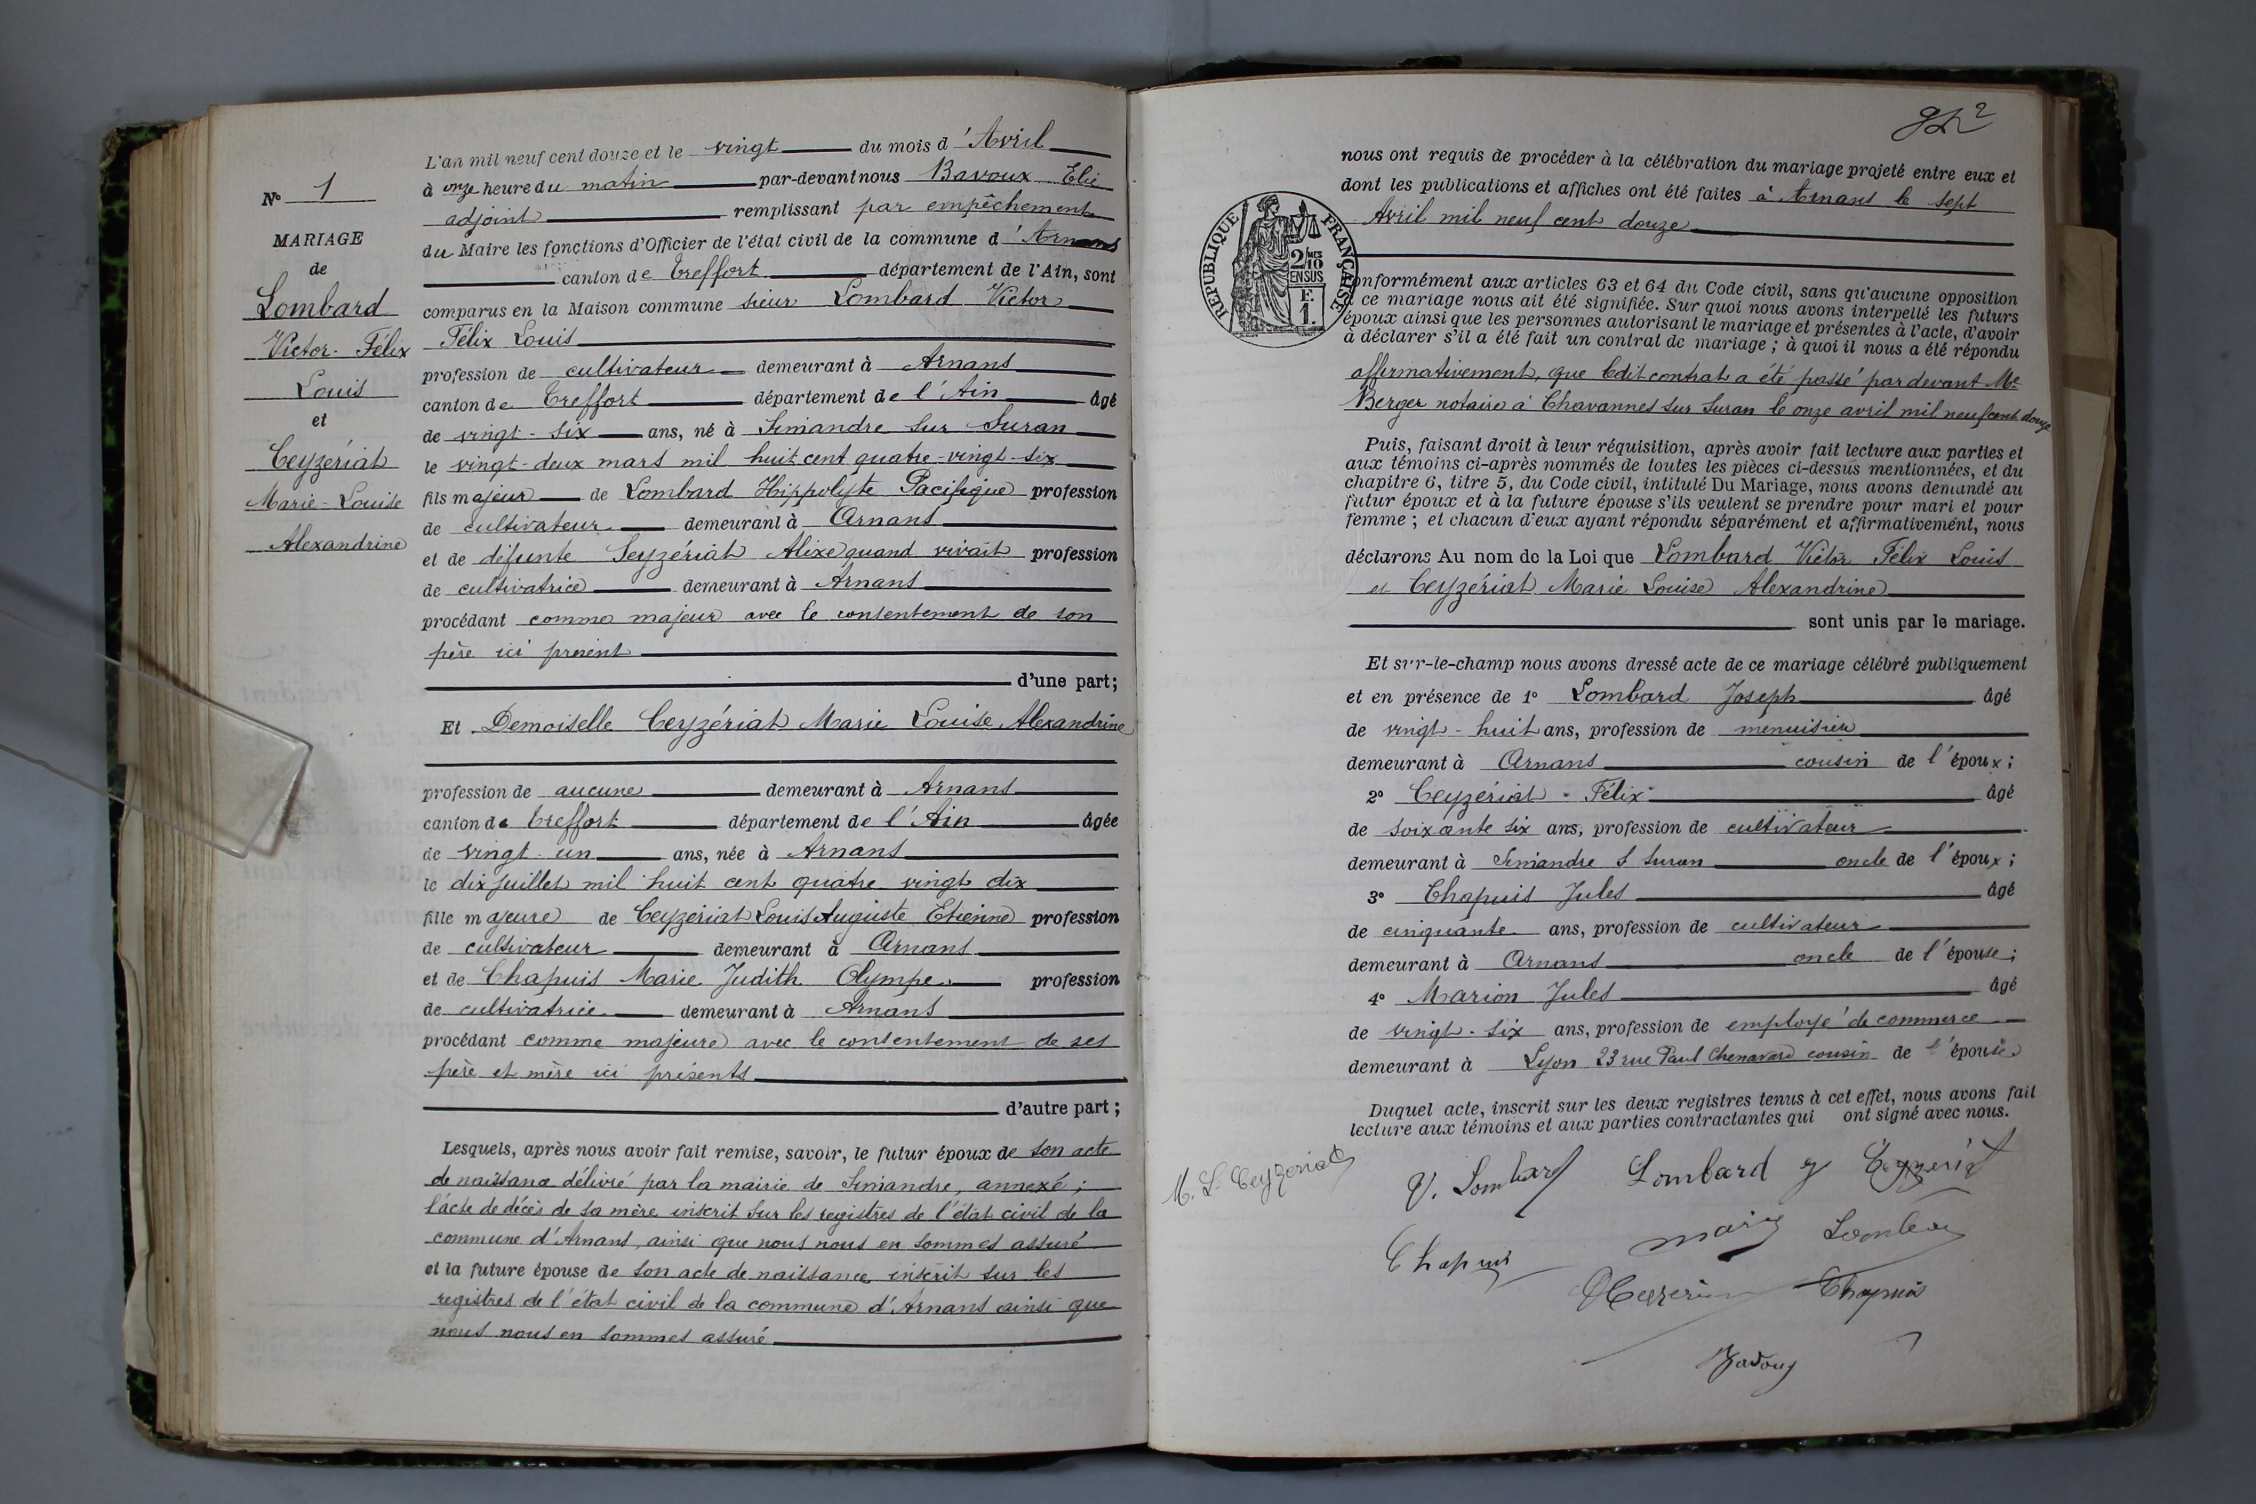 N° 1
MARIAGE
de
Lombard
Victor-Félix
Louis
et
Ceyzériat
Marie-Louise
Alexandrine
L'an mil neuf cent douze et le vingt du mois d'Avril
à onze heure du matin par-devant nous Bavoux Elie
adjoint remplissant par empêchement
du Maire les fonctions d'Officier de l'état civil de la commune d'Arnans
canton de Treffort département de l'Ain, sont
comparus en la Maison commune sieur Lombard Victor
Félix Louis
profession de cultivateur demeurant à Arnans
canton de Treffort département de l'Ain âgé
de vingt-six ans, né à Simandre sur Suran
le vingt-deux mars mil huit cent quatre-vingt-six
fils majeur de Lombard Hippolyte Pacifique profession
de cultivateur demeurant à Arnans
et de défunte Seyzériat Alixe quand vivait profession
de cultivatrice demeurant à Arnans
procédant comme majeur avec le consentement de son
père ici présent
d'une part;
Et Demoiselle Ceyzériat Marie Louise Alexandrine
profession de aucune demeurant à Arnans
canton de Treffort département de l'Ain âgée
de vingt-un ans, née à Arnans
le dix juillet mil huit cent quatre vingt dix
fille majeure de Ceyzériat Louis Auguste Etienne profession
de cultivateur demeurant à Arnans
et de Chapuis Marie Judith Olympe profession
de cultivatrice demeurant à Arnans
procédant comme majeure avec le consentement de ses
père et mère ici présents
d'autre part;
Lesquels, après nous avoir fait remise, savoir, le futur époux de son acte
de naissance délivré par la mairie de Simandre, annexé;
l'acte de décès de sa mère inscrit sur les registres de l'état civil de la
commune d'Arnans, ainsi que nous nous en sommes assuré
et la future épouse de son acte de naissance inscrit sur les
registres de l'état civil de la commune d'Arnans ainsi que
nous nous en sommes assuré
nous ont requis de procéder à la célébration du mariage projeté entre eux et
dont les publications et affiches ont été faites à Arnans le sept
Avril mil neuf cent douze
RÉPUBLIQUE FRANÇAISE
2/10 MES
EN SUS
F.
1.
onformément aux articles 63 et 64 du Code civil, sans qu'aucune opposition
ce mariage nous ait été signifiée. Sur quoi nous avons interpellé les futurs
époux ainsi que les personnes autorisant le mariage et présentes à l'acte, d'avoir
à déclarer s'il a été fait un contrat de mariage; à quoi il nous a été répondu
affirmativement, que ledit contrat a été passé par devant Me
Berger notaire à Chavannes sur Suran le onze avril mil neuf cent douze
Puis, faisant droit à leur réquisition, après avoir fait lecture aux parties et
aux témoins ci-après nommés de toutes les pièces ci-dessus mentionnées, et du
chapitre 6, titre 5, du Code civil, intitulé Du Mariage, nous avons demandé au
futur époux et à la future épouse s'ils veulent se prendre pour mari et pour
femme; et chacun d'eux ayant répondu séparément et affirmativement, nous
déclarons Au nom de la Loi que Lombard Victor Félix Louis
et Ceyzériat Marie Louise Alexandrine
sont unis par le mariage.
Et sur-le-champ nous avons dressé acte de ce mariage célébré publiquement
et en présence de 1° Lombard Joseph âgé
de vingt-huit ans, profession de menuisier
demeurant à Arnans cousin de l'époux;
2° Ceyzériat Félix âgé
de soixante six ans, profession de cultivateur
demeurant à Simandre s Suran oncle de l'époux;
3° Chapuis Jules âgé
de cinquante ans, profession de cultivateur
demeurant à Arnans oncle de l'épouse;
4° Marion Jules âgé
de vingt-six ans, profession de employé de commerce
demeurant à Lyon 23 rue Paul Chenavard cousin de l'épouse
Duquel acte, inscrit sur les deux registres tenus à cet effet, nous avons fait
lecture aux témoins et aux parties contractantes qui ont signé avec nous.
M. L. Ceyzeriat V. Lombard Lombard Ceyzeriat
Chapuis
Chapuis
Bavoux